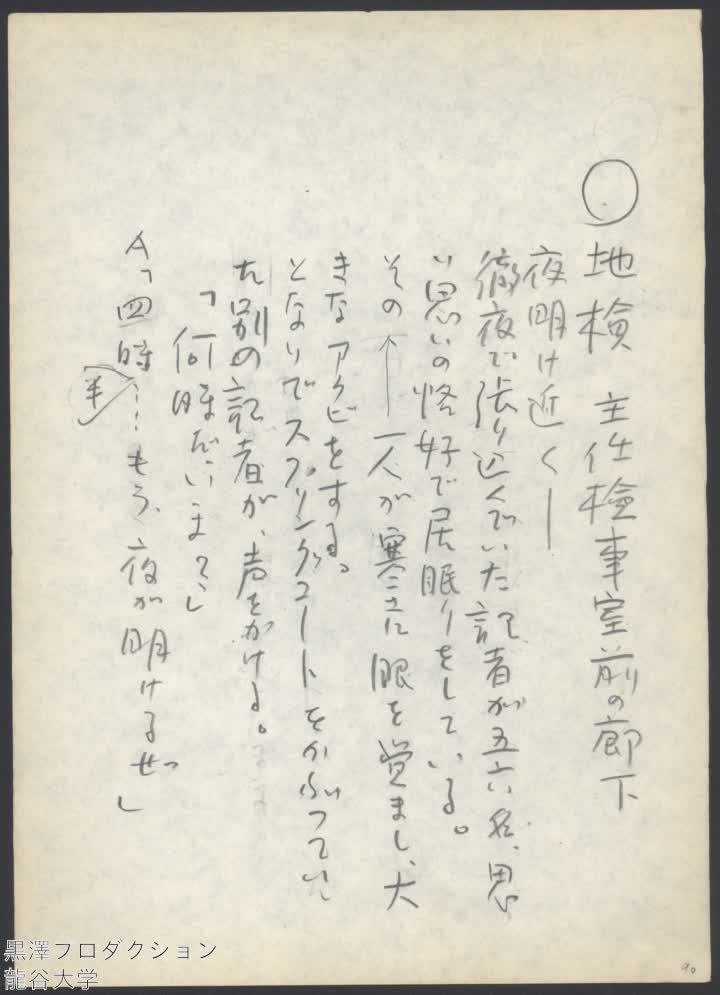 ○ 地検 主任検事室前の廊下
夜明け近く―
徹夜で張り込んでいた記者が五六名、思
い思いの恰好で居眠りをしている。
その 一人が寒さに眼を覚まし、大
きなアクビをする。
となりでスプリングコートをかぶってい
た別の記者が、声をかける。
「何時だい、いま?」
A「四時半…もう、夜が明けるぜっ」
90
黒澤プロダクション
龍谷大学